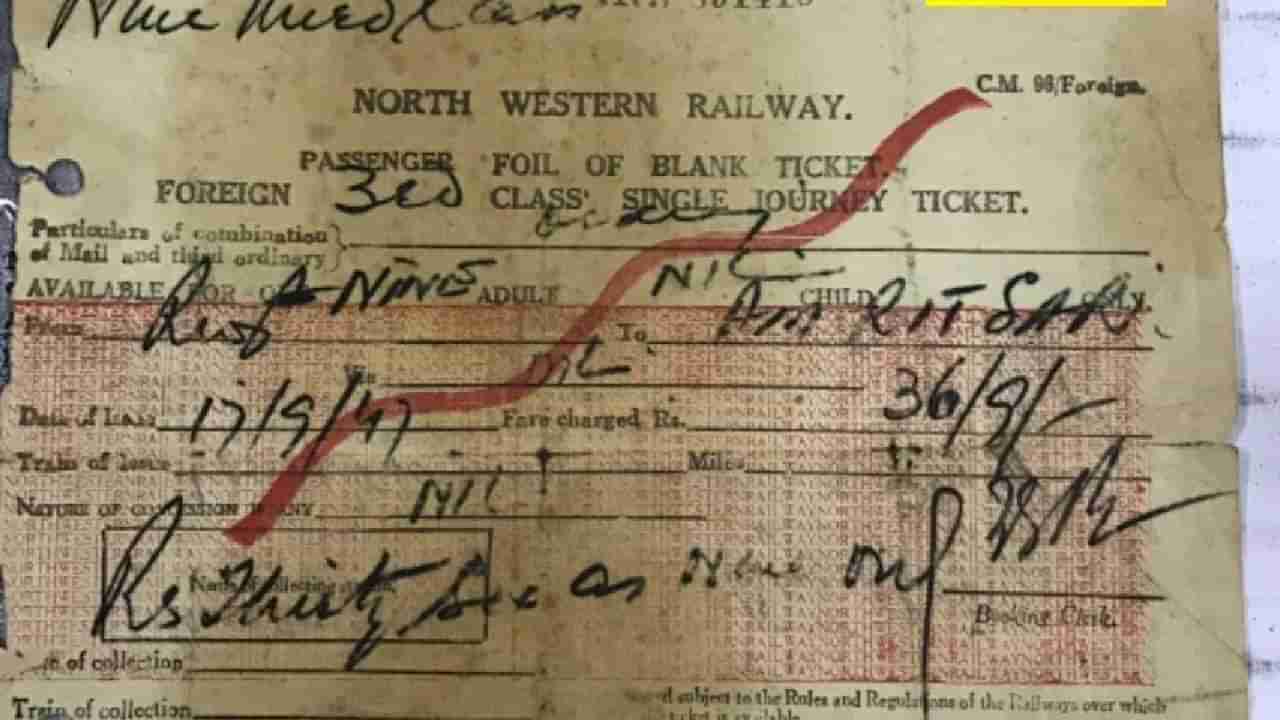 Nine Third Class
NORTH WESTERN RAILWAY.
C.M. 96/Foreign.
PASSENGER FOIL OF BLANK TICKET.
FOREIGN 3rd CLASS SINGLE JOURNEY TICKET.
Particulars of combination
of Mail and third ordinary
AVAILABLE FOR NINE ADULT NIL CHILD ONLY.
From To AmRITSAR
NIL
Date of Issue 17/9/47 Fare charged Rs. 36/9/-
Train of Issue Miles
NATURE OF CONCESSION IF ANY NIL
Name of collecting
Rs Thirty Six as Nine only
Booking Clerk.
of collection
Train of collection
subject to the Rules and Regulations of the Railways over which
ticket is available.